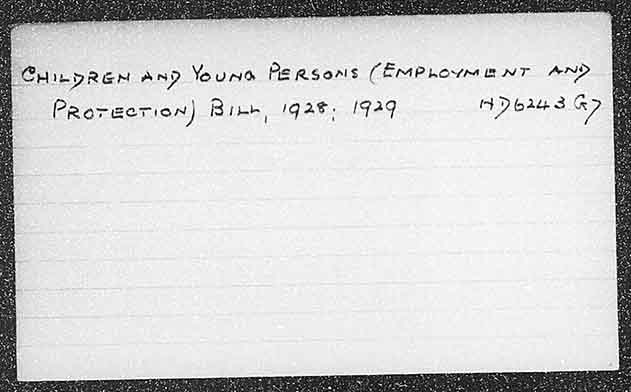 CHILDREN AND YOUNG PERSONS (EMPLOYMENT AND
PROTECTION) BILL, 1928; 1929 HD6243 G7